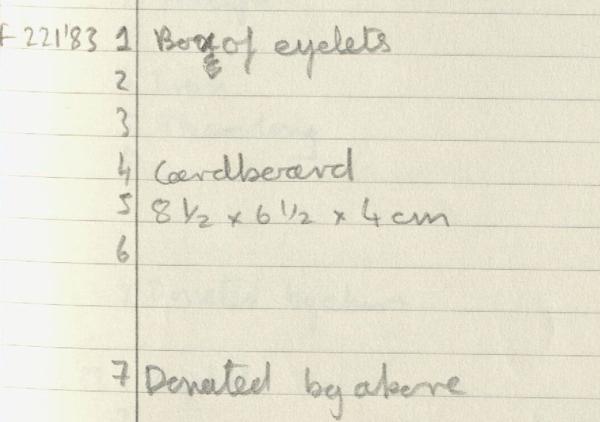 F 221'83 1 Box of eyelets
2
3
4 Cardboard
5 8 1/2 x 6 1/2 x 4 cm
6
7 Donated by above